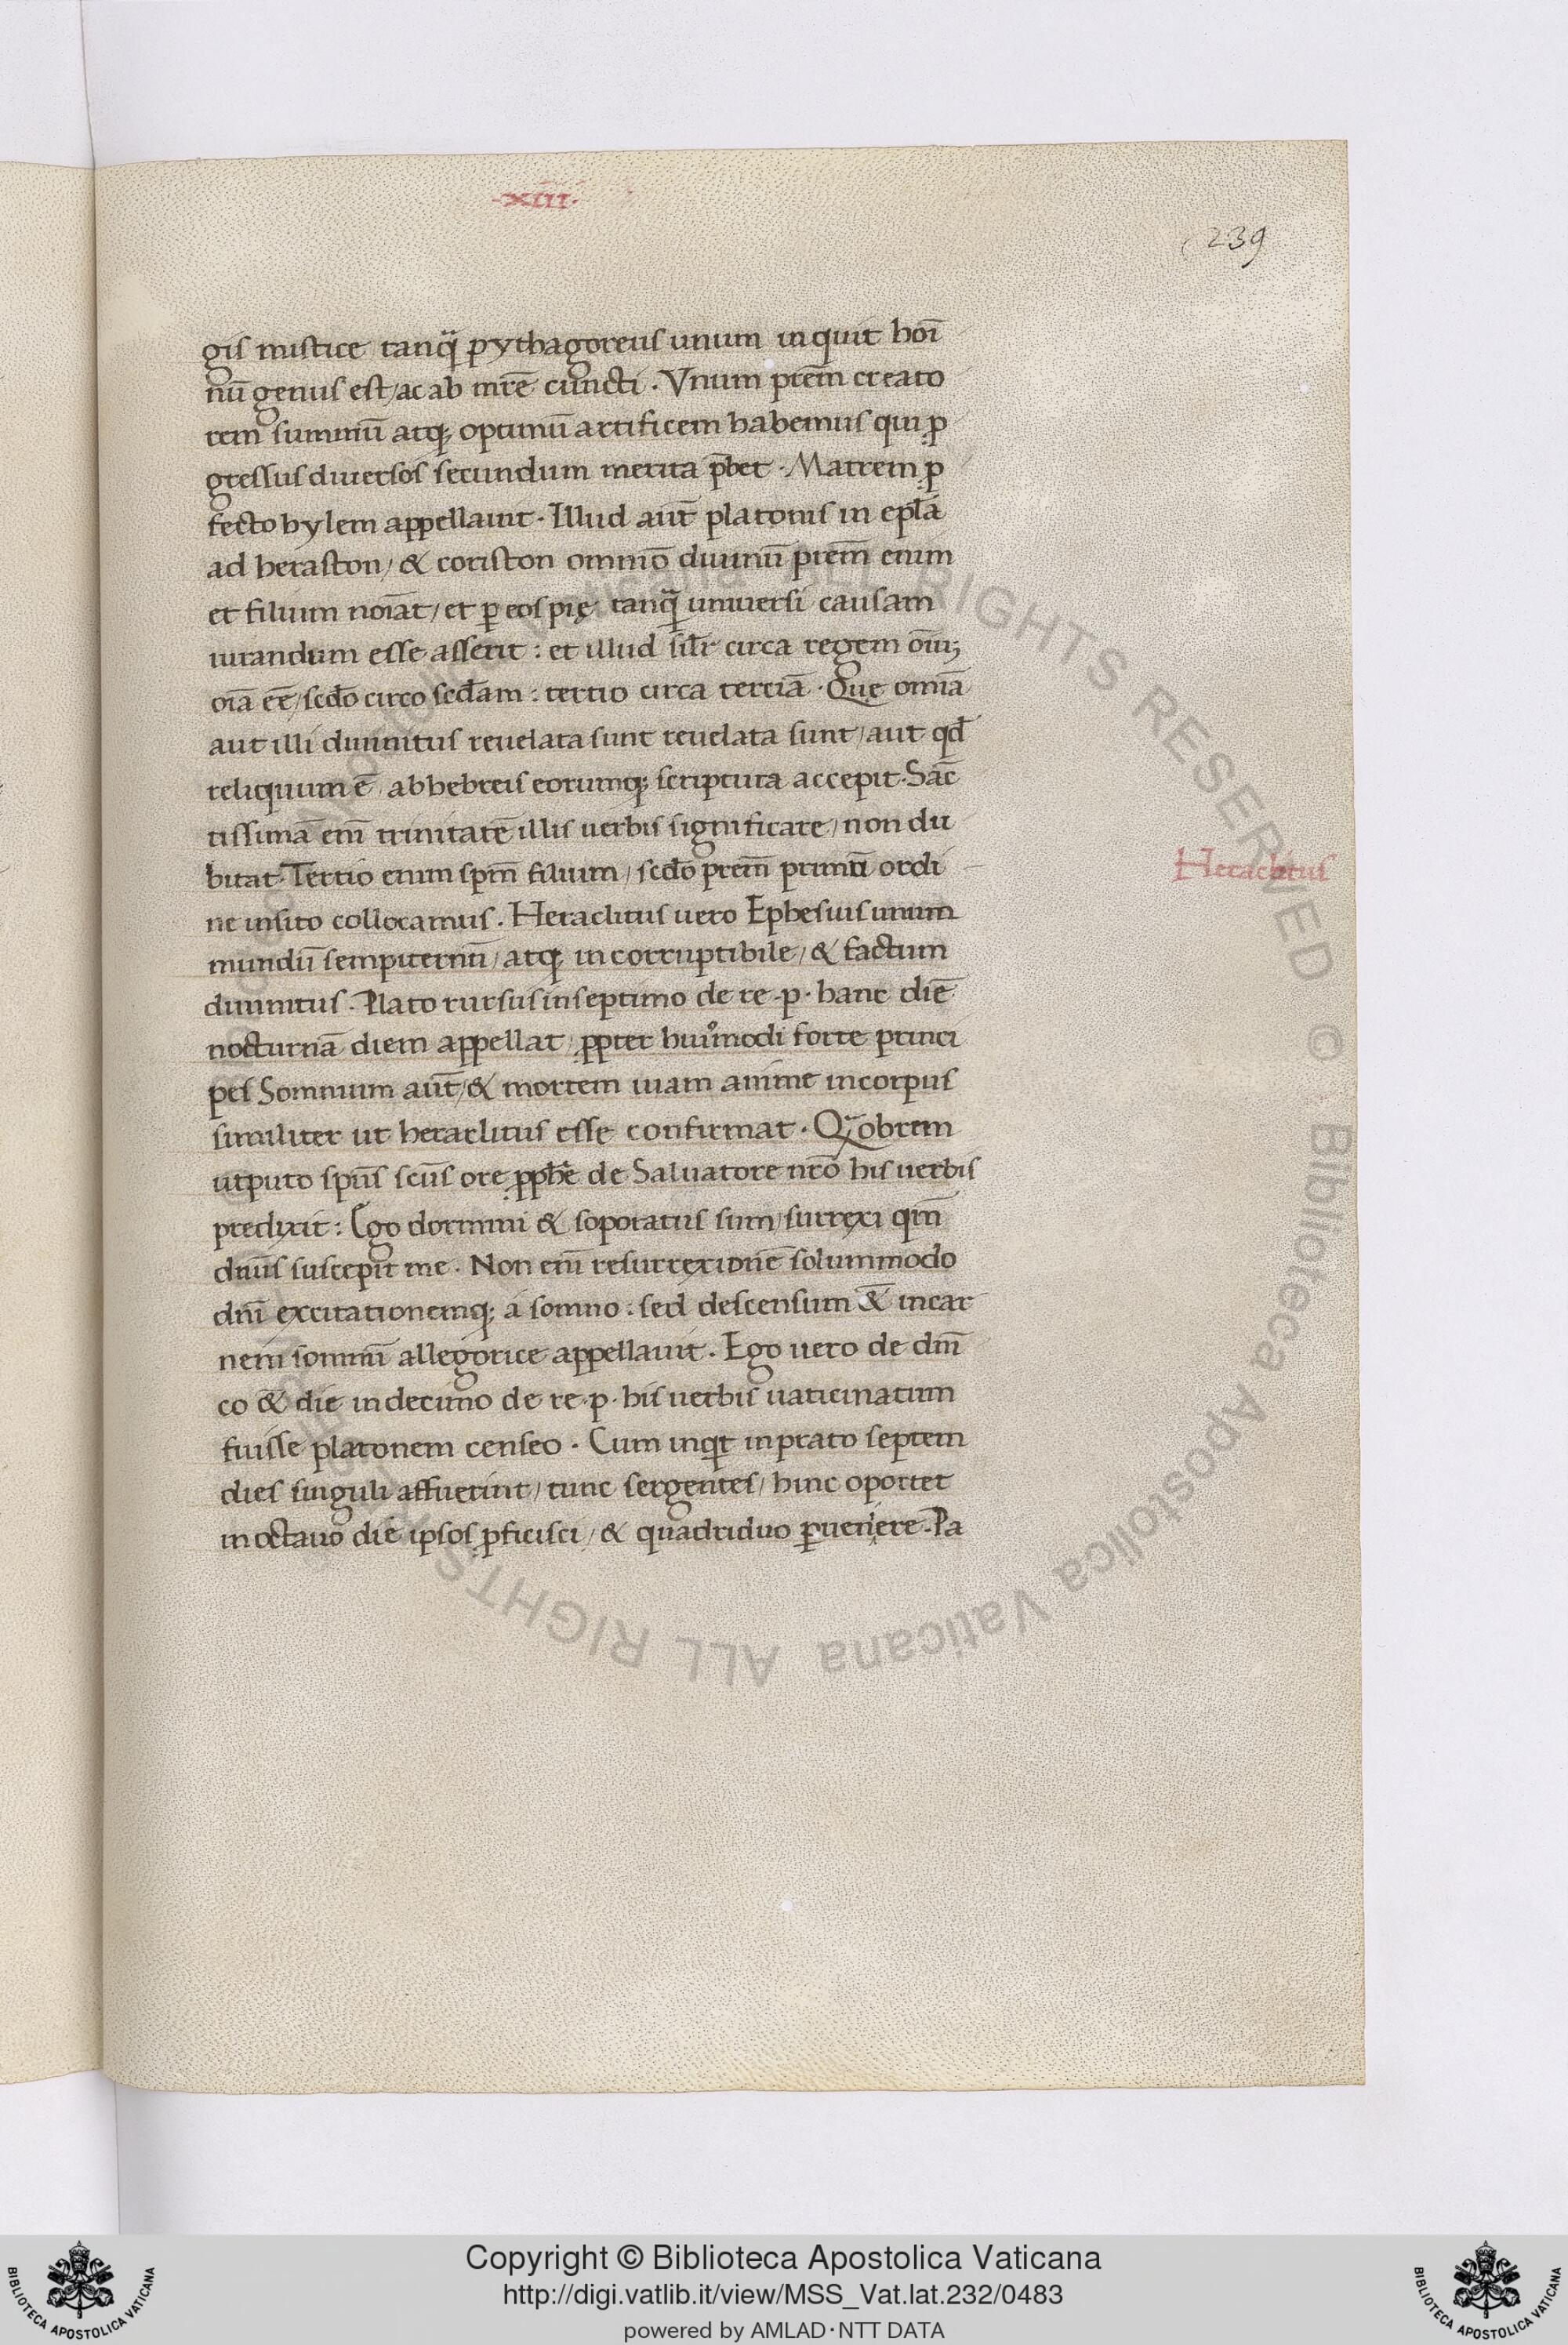 ·xiii·
239
gis mistice tanq̃ pythagoreus unum inquit hoı̄
nū genus est/ac ab mr̄e cuncti . Vnum prēm creato
rem summū atq; optimū artificem habemus qui ꝓ
gressus diuersos secundum merita p̄bet . Matrem ꝓ
fecto hylem appellauit . Illud aūt platonis in epl̄a
ad herascon/ & coriscon omnīo diuinū prēm enim
et filium noīat/ et ꝑ eos pię tanq̃ uniuersi causam
iurandum esse asserit : et illud sil̄r circa regem oı̄ui;
oīa eē/ scd̄o circo scd̄am : tertio circa terciā . Quę omīa
aut illi diuinitus reuelata sunt reuelata sunt/ aut qd̄
reliquum ē/ ab hebreis eorumq; scriptura accepit . Sāc
tissimā enī trinitatē illis uerbis significare/ non du
bitat . Tertio enim spm̄ filium/ scd̄o prēm primū ordi
ne insito collocamus . Heraclitus uero Ephesuis unum
Heraclitus
mundū sempiternū/ atq; incorruptibile/ & factum
diuinitus . Plato rursus in septimo de re . p . hanc diē
nocturnā diem appellat/ ꝓpter huiᵒmodi forte princi
pes Somnium aūt/ & mortem uiam anime in corpus
similiter ut heraclitus esse confirmat . Q̃obrem
ut puto spūs scūs ore ꝓphē de Saluatore nr̄o his uerbis
predixit : Ego dormiui & soporatus sum/ surrexi qm̄
dn̄s suscepit me . Non enī resurrexionē solummodo
dn̄i excitationemq; a somno : sed descensum & in car
nem somnū allegorice appellauit . Ego uero de dn̄i
co & die in decimo de re . p . his uerbis uaticinatum
fuisse platonem censeo . Cum inqt in prato septem
dies singuli affuerint/ tunc sergentes/ hinc oportet
in octauo die ipsos ꝓficisci/ & quadriduo ꝑueniere . Pa
Copyright © Biblioteca Apostolica Vaticana
http://digi.vatlib.it/view/MSS_Vat.lat.232/0483
powered by AMLAD·NTT DATA
BIBLIOTECA APOSTOLICA VATICANA
BIBLIOTECA APOSTOLICA VATICANA
ALL RIGHTS RESERVED © Biblioteca Apostolica Vaticana ALL RIGHTS